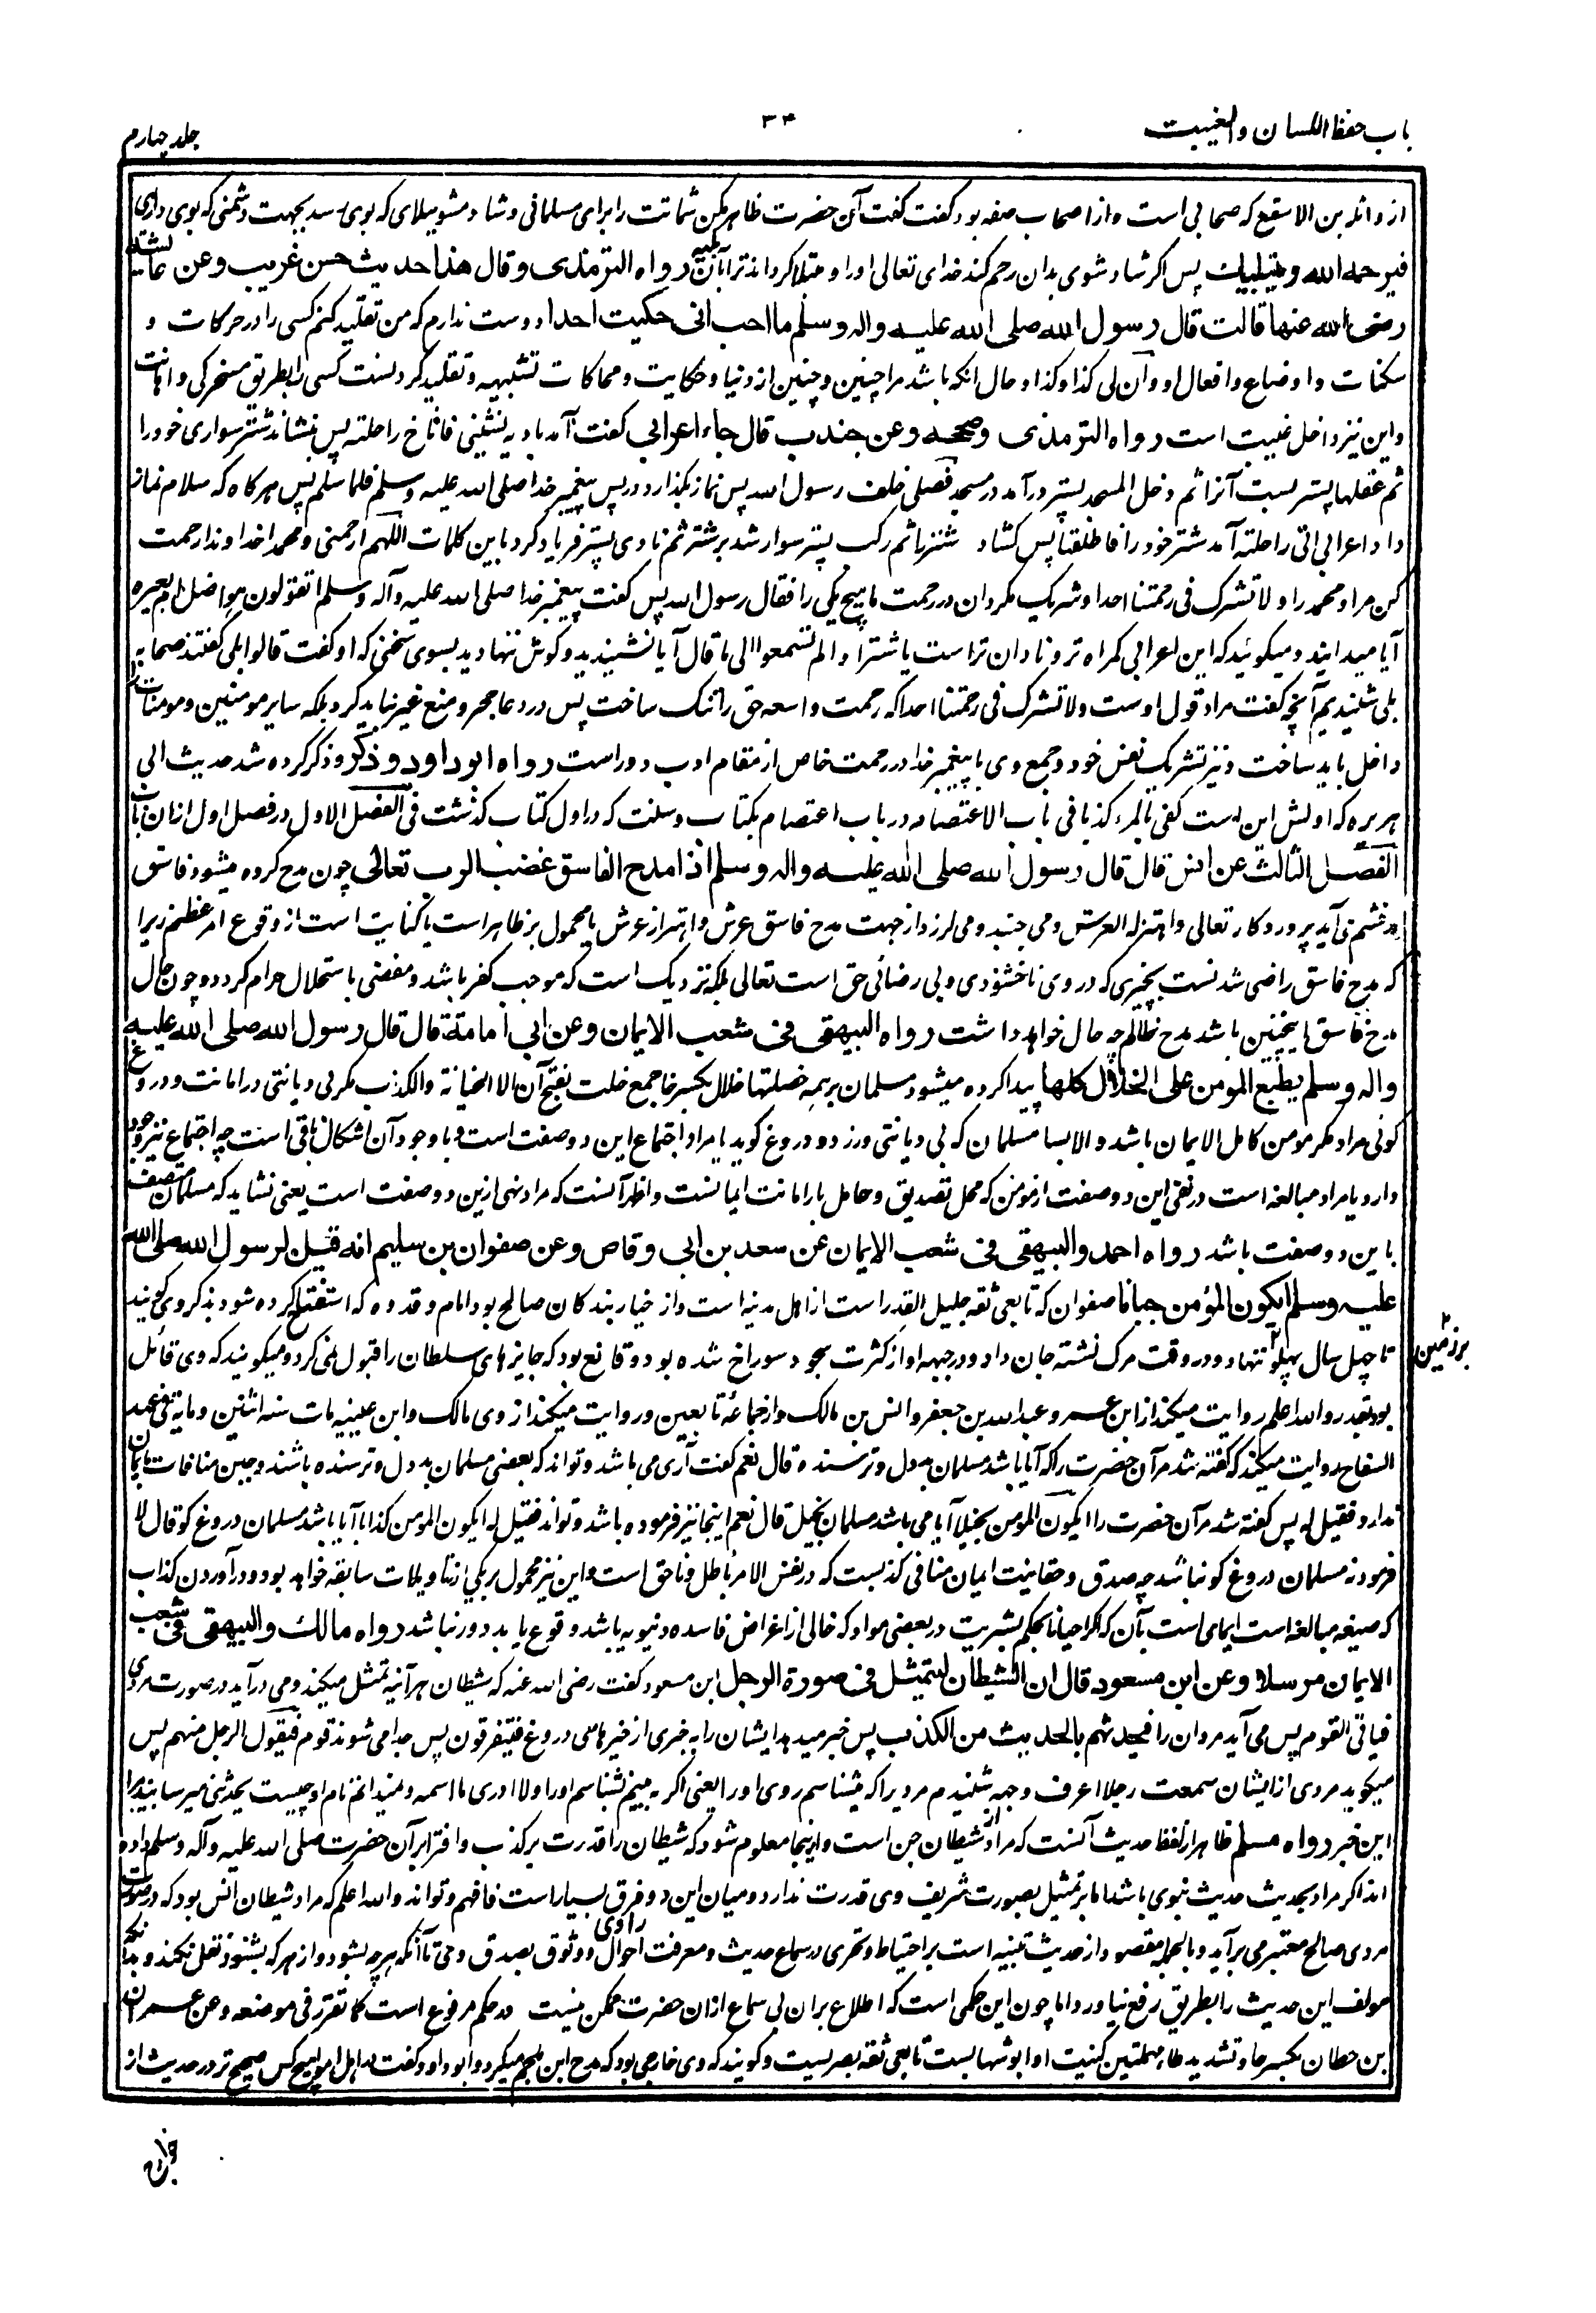 باب حفظ اللسان والغیبت
۳۴
جلد چهارم
از واثله بن الاسقع که صحابی است و از اصحاب صفه بود گفت گفت آن حضرت ظاهر مکن شماتت را برای مسلمانی و شاد مشو ببلای که بوی رسد بجهت دشمنی که بوی داری
فیرحمه الله ویبتلیک پس اگر شاد شوی بدان رحم کند خدای تعالی او را و مبتلا گرداند ترا بآن بلیه رواه الترمذی وقال هذا حدیث حسن غریب وعن عائشة
رضی الله عنها قالت قال رسول الله صلی الله علیه واله وسلم ما احب انی حکیت احدا دوست ندارم که من تقلید کنم کسی را در حرکات و
سکنات و اوضاع و افعال او وان لی کذا وکذا و حال انکه باشد مرا چنین و چنین از دنیا و حکایت و محاکات تشبیه و تقلید کردنست کسی را بطریق مسخرگی و اهانت
و این نیز داخل غیبت است رواه الترمذی وصححه وعن جندب قال جاء اعرابی گفت آمد بادیه نشینی فاناخ راحلته پس بنشاند شتر سواری خود را
ثم عقلها پستر ببست آنرا ثم دخل المسجد پستر درآمد در مسجد فصلی خلف رسول الله پس نماز بگذارد در پس پیغمبر خدا صلی الله علیه وسلم فلما سلم پس هرگاه که سلام نماز
داد اعرابی اتی راحلته آمد شتر خود را فاطلقها پس گشاد شتر را ثم رکب پستر سوار شد بر شتر ثم نادی پستر فریاد کرد باین کلمات اللهم ارحمنی ومحمدا خداوندا رحمت
کن مرا و محمد را ولا تشرک فی رحمتنا احدا و شریک مگردان در رحمت ما هیچ یکی را فقال رسول الله پس گفت پیغمبر خدا صلی الله علیه وآله وسلم اتقولون هو اضل ام بعیره
آیا میدانید و میگوئید که این اعرابی گمراه تر و نادان تر است یا شتر او الم تسمعوا الی ما قال آیا نشنیدید و گوش ننهادید بسوی سخنی که او گفت قالوا بلی گفتند صحابه
بلی شنیدیم آنچه گفت مراد قول اوست ولا تشرک فی رحمتنا احدا که رحمت واسعه حق را تنگ ساخت پس در دعا حجر و منع غیر نباید کرد بلکه سایر مومنین و مومنات را
داخل باید ساخت و نیز تشریک نفس خود و جمع وی با پیغمبر خدا در رحمت خاص از مقام ادب دور است رواه ابو داود وذکر و ذکر کرده شد حدیث ابی
هریره که اولش این است کفی بالمرء کذبا فی باب الاعتصام در باب اعتصام بکتاب و سنت که در اول کتاب گذشت فی الفصل الاول در فصل اول ازان باب
الفصل الثالث عن انس قال قال رسول الله صلی الله علیه واله وسلم اذا مدح الفاسق غضب الرب تعالی چون مدح کرده میشود فاسق
در خشم می آید پروردگار تعالی واهتز له العرش و می جنبد و می لرزد از جهت مدح فاسق عرش و اهتزاز عرش یا محمول بر ظاهر است یا کنایت است از وقوع امر عظیم زیرا
که مدح فاسق راضی شدنست بچیزی که در وی ناخشنودی و بی رضائی حق است تعالی بلکه نزدیک است که موجب کفر باشد و مفضی باستحلال حرام گردد و چون حال
مدح فاسق اینچنین باشد مدح ظالم چه حال خواهد داشت رواه البیهقی فی شعب الایمان وعن ابی امامة قال قال رسول الله صلی الله علیه
واله وسلم یطبع المومن علی الخلال کلها پیدا کرده میشود مسلمان بر همه خصلتها خلال بکسر خا جمع خلت بفتح آن الا الخیانة والکذب مگر بی دیانتی در امانت و دروغ
گوئی مراد مگر مومن کامل الایمان باشد و الا بسا مسلمان که بی دیانتی ورزد و دروغ گوید یا مراد اجتماع این دو صفت است و با وجود آن اشکال باقی است چه اجتماع نیز وجود
دارد یا مراد مبالغه است در نفی این دو صفت از مومن که محل تصدیق و حامل بار امانت ایمانست و اظهر آنست که مراد نهی ازین دو صفت است یعنی نشاید که مسلمان متصف
باین دو صفت باشد رواه احمد والبیهقی فی شعب الایمان عن سعد بن ابی وقاص وعن صفوان بن سلیم انه قیل لرسول الله صلی الله
علیه وسلم ایکون المؤمن جبانا صفوان که تابعی ثقه جلیل القدر است از اهل مدینه است و از خیار بندگان صالح بود امام و قدوه که استفتاح کرده شود بذکر وی گویند
تا چهل سال پهلو ننهاد و در وقت مرگ نشسته جان داد و در جبهه او از کثرت سجود سوراخ شده بود و قانع بود که جایزهای سلطان را قبول نمی کرد و میگویند که وی قائل
برزمین
بود بقدر والله اعلم روایت میکند از ابن عمر و عبدالله بن جعفر و انس بن مالک و از جماعه تابعین و روایت میکند از وی مالک و ابن عیینه مات سنه اثنین و مایة فی عهد
السفاح روایت میکند که گفته شد مر آن حضرت را که آیا باشد مسلمان بددل و ترسنده قال نعم گفت آری می باشد و تواند که بعضی مسلمان بددل و ترسنده باشند و جبن منافات بایمان
ندارد فقیل له پس گفته شد مر آن حضرت را ایکون المومن بخیلا آیا می باشد مسلمان بخیل قال نعم اینجا نیز فرموده باشد و تواند فقیل له ایکون المومن کذابا آیا باشد مسلمان دروغ گو قال لا
فرمود نه مسلمان دروغ گو نباشد چه صدق و حقانیت ایمان منافی کذبست که در نفس الامر باطل و ناحق است و این نیز محمول بر یکی از تاویلات سابقه خواهد بود و در آوردن کذاب
که صیغه مبالغه است ایمای است بآن که اگر احیانا بحکم بشریت در بعضی مواد که خالی از اغراض فاسده دنیویه باشد وقوع یابد دور نباشد رواه مالک والبیهقی فی شعب
الایمان مرسلا وعن ابن مسعود قال ان الشیطان لیتمثل فی صورة الرجل ابن مسعود گفت رضی الله عنه که شیطان هر آینه تمثل میکند و می درآید در صورت مردی
فیاتی القوم پس می آید مردان را فیحدثهم بالحدیث من الکذب پس خبر میدهد ایشان را به خبری از خبرهای دروغ فیتفرقون پس جدا می شوند قوم فیقول الرجل منهم پس
میگوید مردی از ایشان سمعت رجلا اعرف وجهه شنیدم مردیرا که میشناسم روی او را یعنی اگر به بینم بشناسم او را ولا ادری ما اسمه و نمیدانم نام او چیست یحدثنی میرسانید مرا
این خبر رواه مسلم ظاهر از لفظ حدیث آنست که مراد از شیطان جن است و ازینجا معلوم شود که شیطان را قدرت بر کذب و افترا بر آن حضرت صلی الله علیه وآله وسلم داده
اند اگر مراد بحدیث حدیث نبوی باشد اما بر تمثیل بصورت شریف وی قدرت ندارد و میان این دو فرق بسیار است فافهم و تواند والله اعلم که مراد شیطان انس بود که در صورت
مردی صالح معتبر می برآید و بالجمله مقصود از حدیث تنبیه است بر احتیاط و تحری در سماع حدیث و معرفت احوال راوی و وثوق بصدق وی تا آنکه هر چه بشنود و از هر که بشنود نقل نکند و بدانکه
مولف این حدیث را بطریق رفع نیاورد اما چون این حکمی است که اطلاع بران بی سماع ازان حضرت ممکن نیست در حکم مرفوع است کما تقرر فی موضعه وعن عمران
بن حطان بکسر حا و تشدید طاء مهملتین کنیت او ابوشهابست تابعی ثقه بصریست و گویند که وی خارجی بود که مدح ابن ملجم میکرد و ابو داود گفت در اهل اهوا هیچ کس صحیح تر در حدیث از